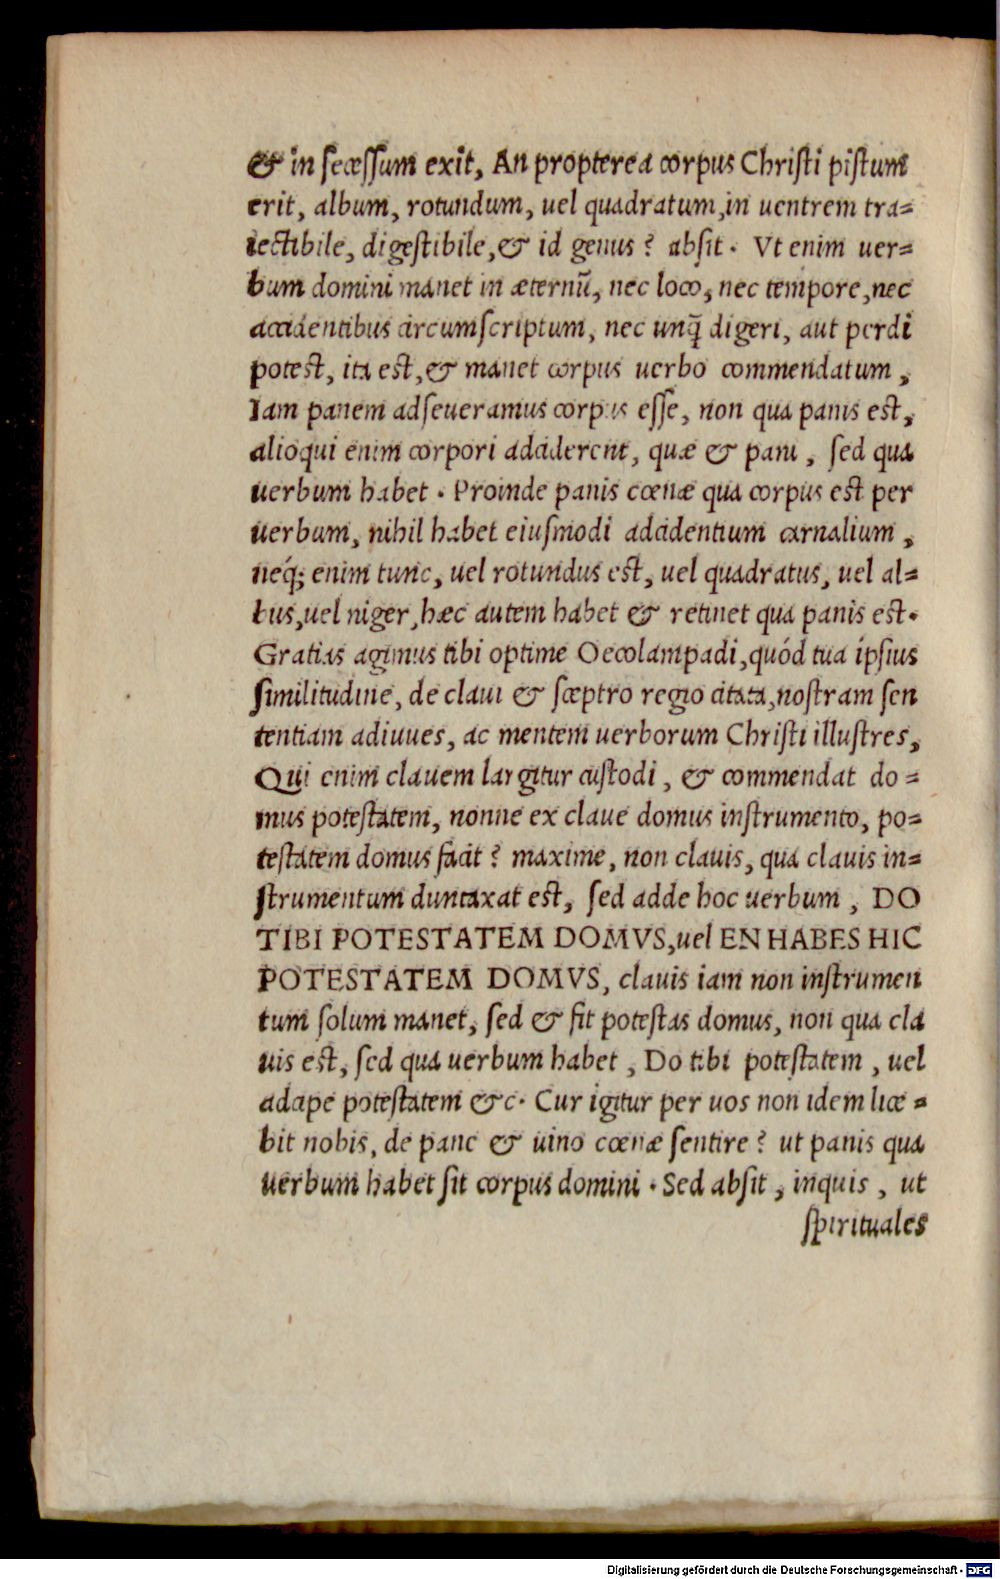 & in ſeceſſum exit, An propterea corpus Chriſti piſtum
erit, album, rotundum, uel quadratum, in uentrem tra=
iectibile, digeſtibile, & id genus? abſit. Vt enim uer=
bum domini manet in æternũ, nec loco, nec tempore, nec
accidentibus circumſcriptum, nec unq̃ digeri, aut perdi
poteſt, ita eſt, & manet corpus uerbo commendatum,
Iam panem adſeueramus corpus eſſe, non qua panis eſt,
alioqui enim corpori acciderent, quæ & pani, ſed qua
uerbum habet. Proinde panis cœnæ qua corpus eſt per
uerbum, nihil habet eiuſmodi accidentium carnalium,
neq́; enim tunc, uel rotundus eſt, uel quadratus, uel al=
bus, uel niger, hæc autem habet & retinet qua panis eſt.
Gratias agimus tibi optime Oecolampadi, quód tua ipſius
ſimilitudine, de claui & ſceptro regio citata, noſtram ſen
tentiam adiuues, ac mentem uerborum Chriſti illuſtres,
Qui enim clauem largitur cuſtodi, & commendat do=
mus poteſtatem, nonne ex claue domus inſtrumento, po=
teſtatem domus facit? maxime, non clauis, qua clauis in=
ſtrumentum duntaxat eſt, ſed adde hoc uerbum, DO
TIBI POTESTATEM DOMVS, uel EN HABES HIC
POTESTATEM DOMVS, clauis iam non inſtrumen
tum ſolum manet, ſed & fit poteſtas domus, non qua cla
uis eſt, ſed qua uerbum habet, Do tibi poteſtatem, uel
adcipe poteſtatem &c. Cur igitur per uos non idem lice=
bit nobis, de pane & uino cœnæ ſentire? ut panis qua
uerbum habet ſit corpus domini. Sed abſit, inquis, ut
ſpirituales
Digitalisierung gefördert durch die Deutsche Forschungsgemeinschaft - DFG